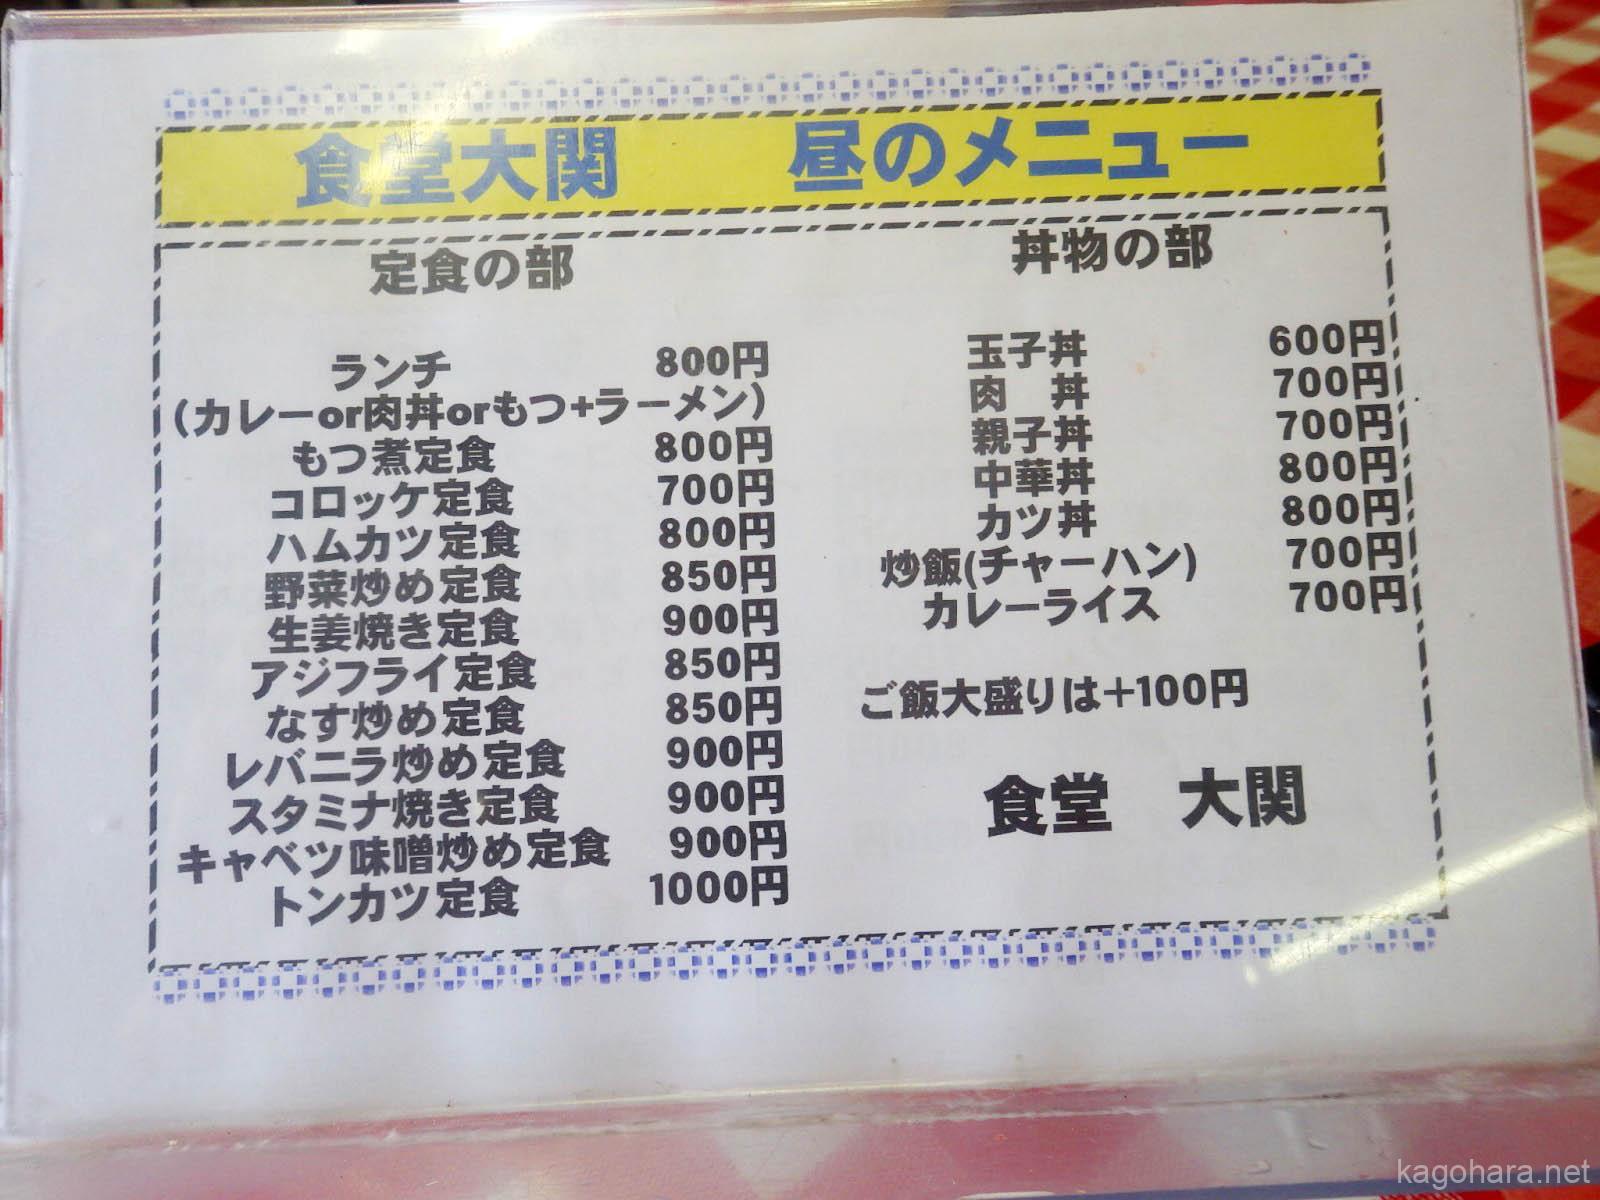 食堂大関　昼のメニュー
定食の部
ランチ 800円
(カレーor肉丼orもつ+ラーメン)
もつ煮定食 800円
コロッケ定食 700円
ハムカツ定食 800円
野菜炒め定食 850円
生姜焼き定食 900円
アジフライ定食 850円
なす炒め定食 850円
レバニラ炒め定食 900円
スタミナ焼き定食 900円
キャベツ味噌炒め定食 900円
トンカツ定食 1000円
丼物の部
玉子丼 600円
肉　丼 700円
親子丼 700円
中華丼 800円
カツ丼 800円
炒飯(チャーハン) 700円
カレーライス 700円
ご飯大盛りは+100円
食堂　大関
kagohara.net